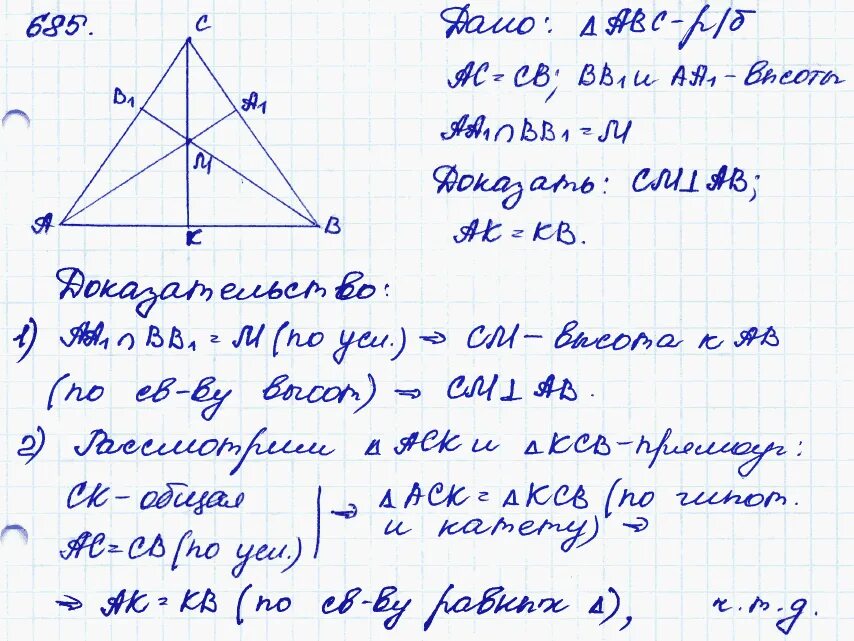 685.
C
B₁
A₁
M
A
K
B
Дано: △ABC - р/б
AC = CB; BB₁ и AA₁ - высоты
AA₁ ∩ BB₁ = M
Доказать: CM ⊥ AB;
AK = KB.
Доказательство:
1) AA₁ ∩ BB₁ = M (по усл.) ⇒ CM - высота к AB
(по св-ву высот) ⇒ CM ⊥ AB.
2) Рассмотрим △ACK и △KCB - прямоуг:
CK - общая
AC = CB (по усл.)
⇒ △ACK = △KCB (по гипот.
и катету) ⇒
⇒ AK = KB (по св-ву равных △), ч.т.д.